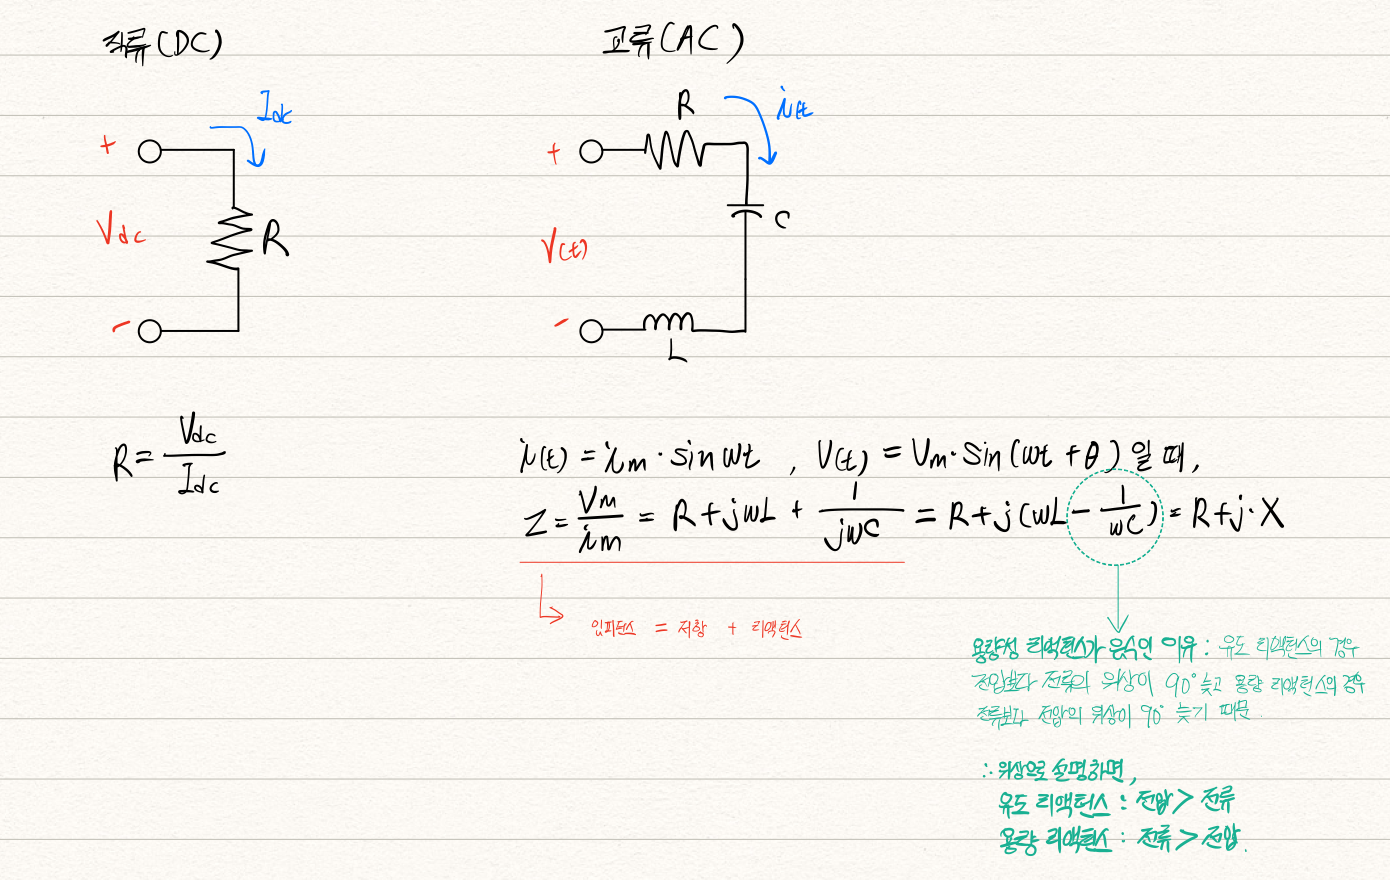 직류(DC)
Idc
+
Vdc
R
-
R = Vdc / Idc
교류(AC)
R
i(t)
+
V(t)
C
-
L
i(t) = im · sin wt , V(t) = Vm · sin (wt + θ) 일 때,
Z = Vm / im = R + jwL + 1 / jwC = R + j(wL - 1 / wC) = R + j · X
임피던스 = 저항 + 리액턴스
용량성 리액턴스가 음수인 이유 : 유도 리액턴스의 경우
전압보다 전류의 위상이 90° 늦고 용량 리액턴스의 경우
전류보다 전압의 위상이 90° 늦기 때문.
∴ 위상으로 설명하면,
유도 리액턴스 : 전압 > 전류
용량 리액턴스 : 전류 > 전압.